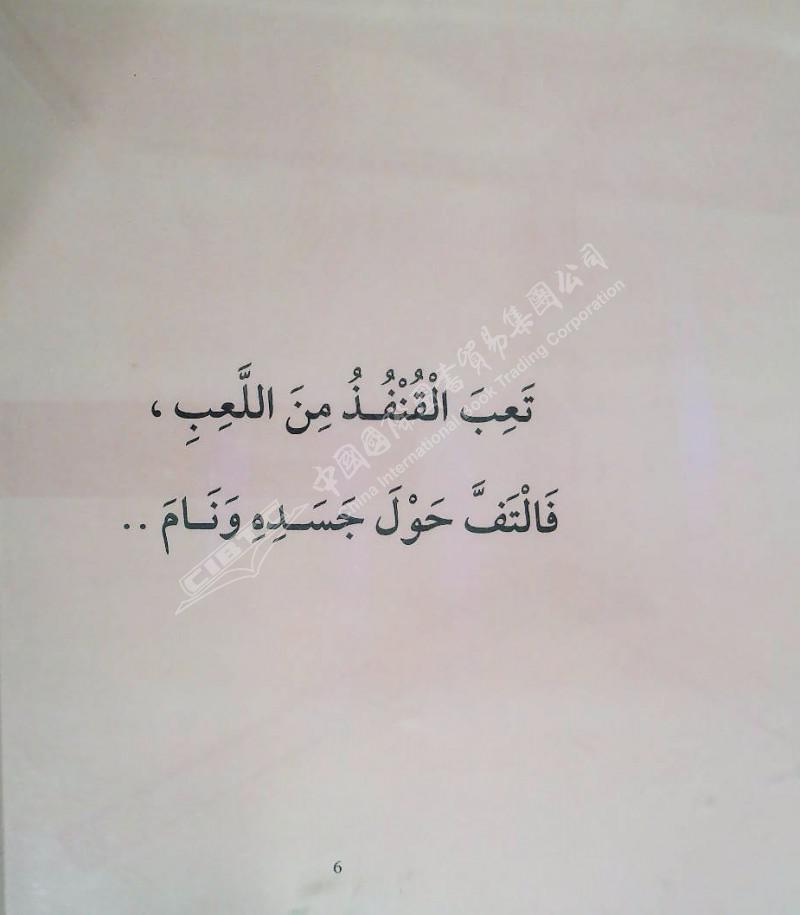 تَعِبَ الْقُنْفُـذُ مِنَ اللَّعِبِ ،
فَالْتَفَّ حَوْلَ جَسَـدِهِ وَنَـامَ ..
中國國際圖書貿易集團公司
China International Book Trading Corporation
CIBTC
6